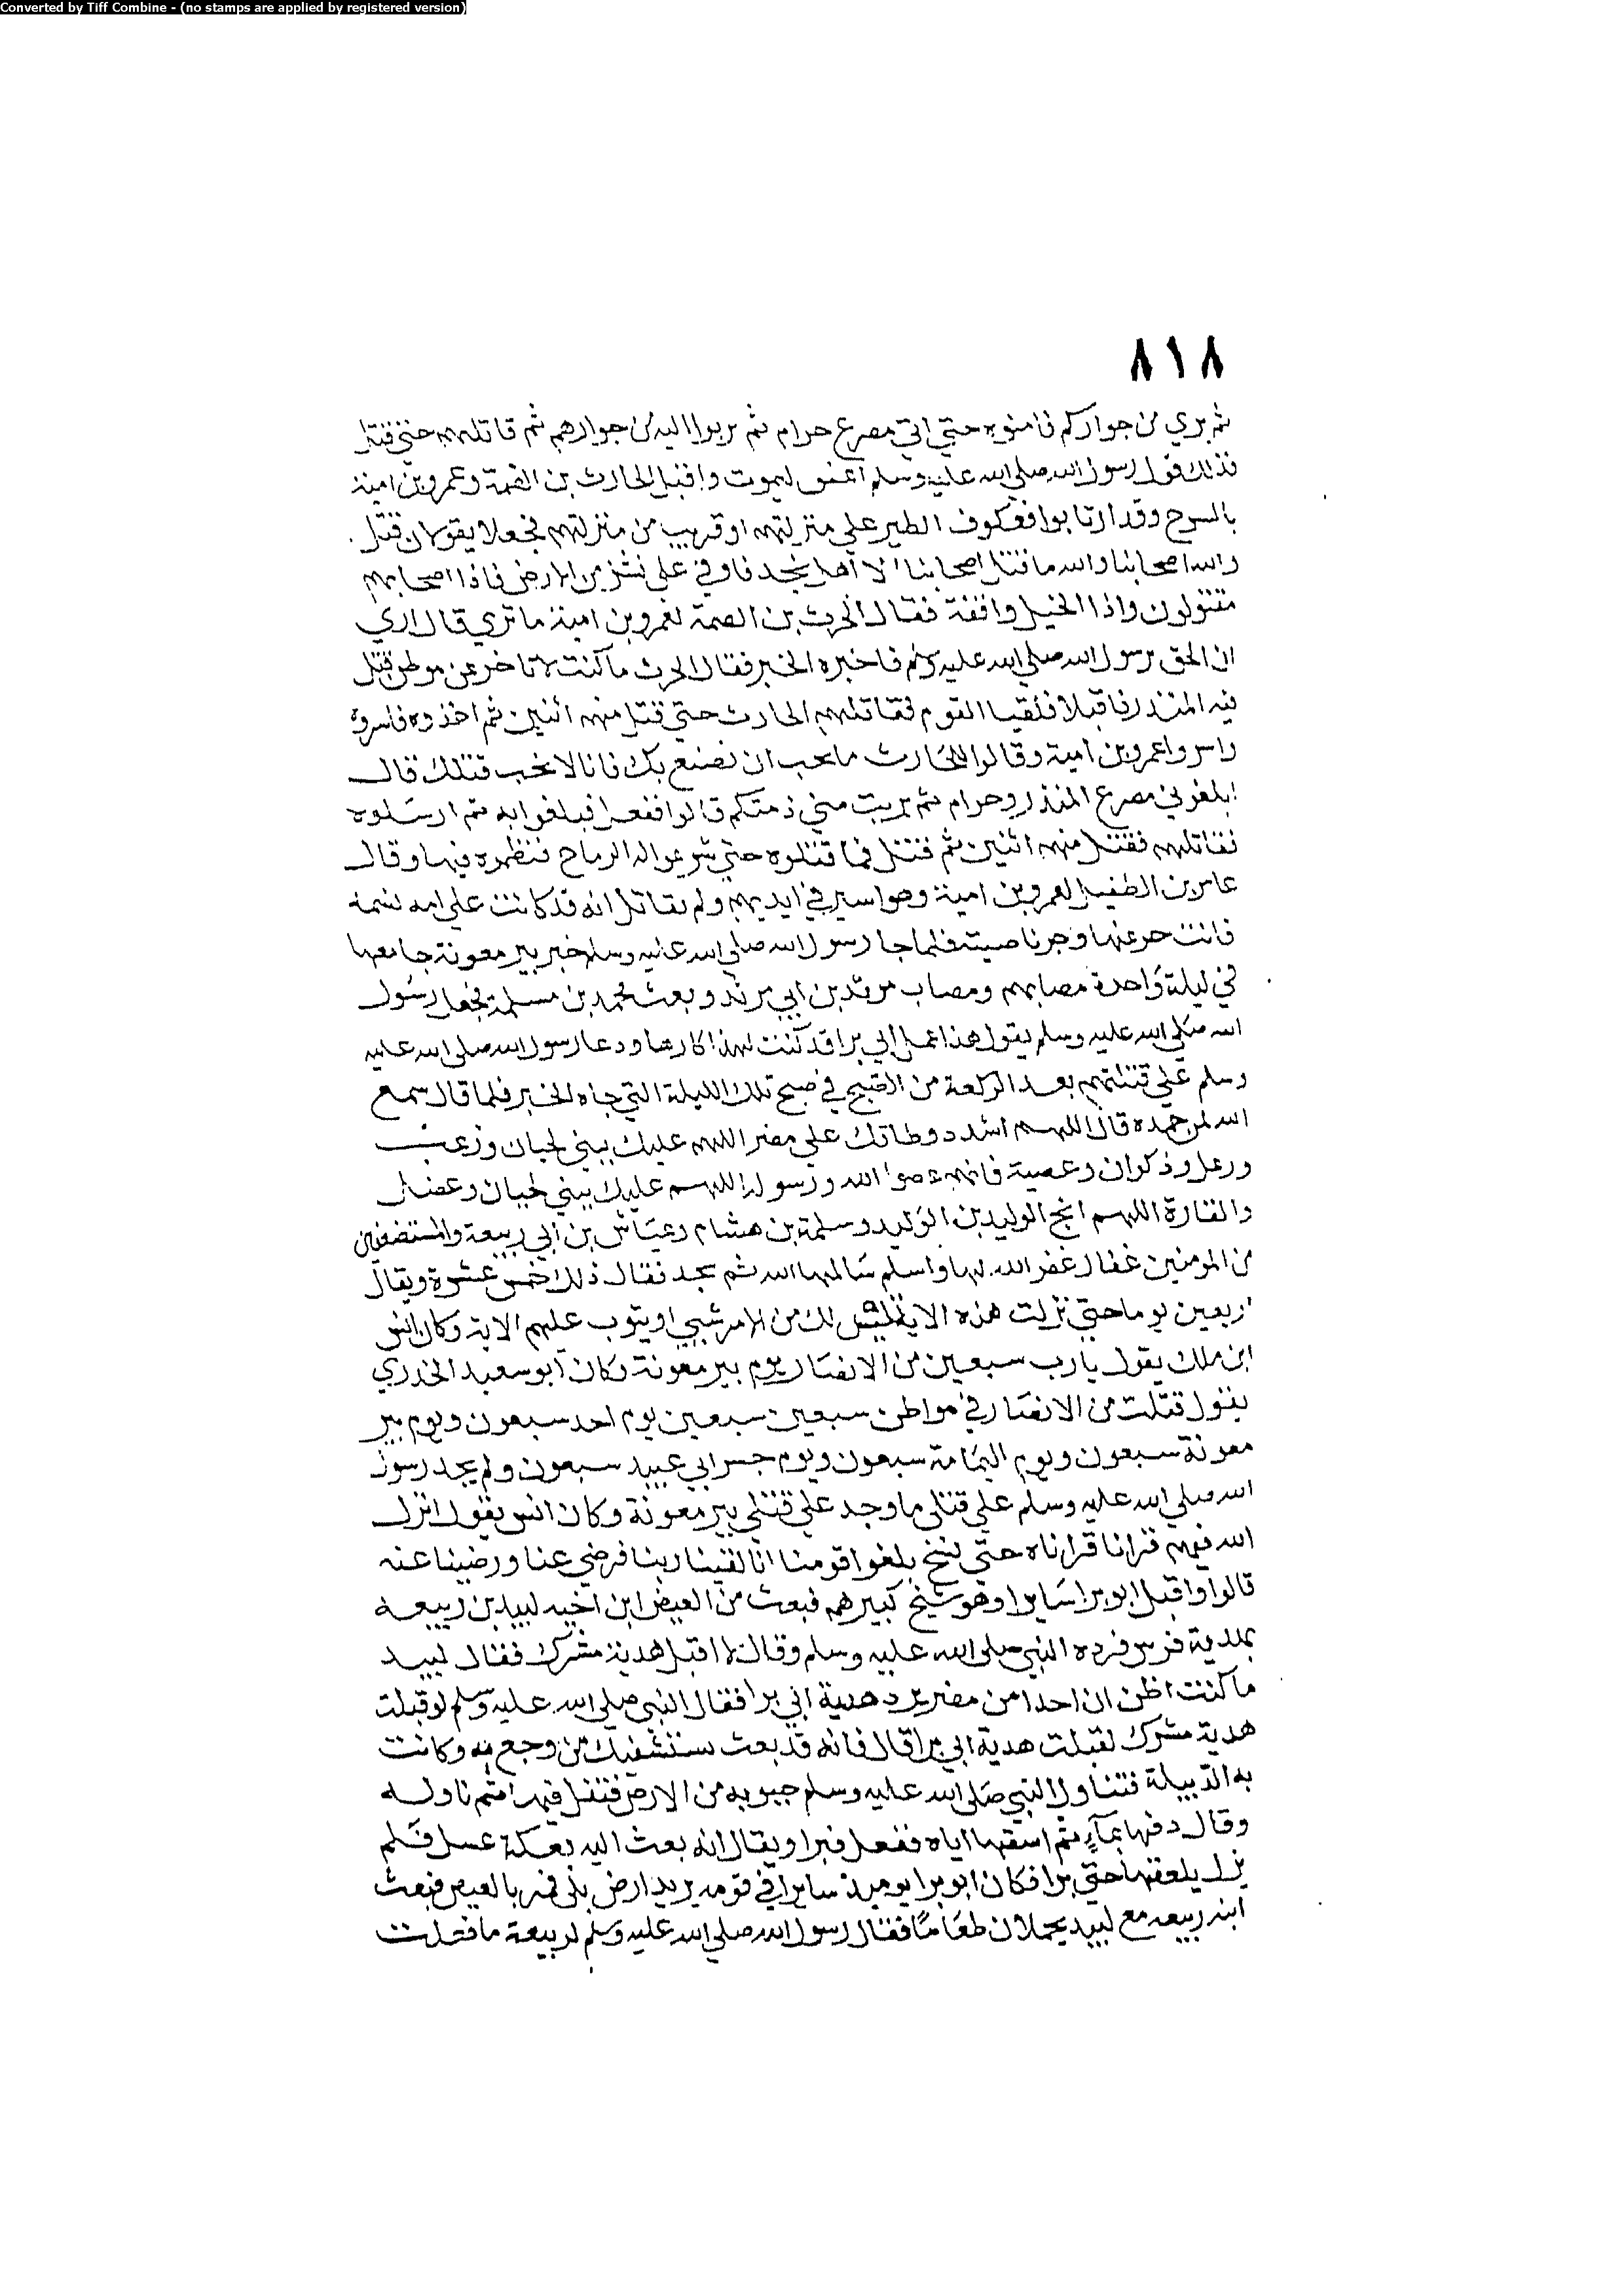 Converted by Tiff Combine - (no stamps are applied by registered version)
٨١٨
ثم بري من جواركم فامنوه حتي اتي مصرع حرام ثم بربوا اليه من جوارهم ثم قاتلهم حتي قتل
فذلك قول رسول الله صلي الله عليه وسلم اعنق ليموت واقبل الحارث بن الصمة وعمرو بن امية
بالسرح وقد ارتابوا فعكوف الطير علي منزلتهم او قريب من منزلتهم فجعلا يقولان قتل
والله اصحابنا والله ما قتل اصحابنا الا اهل نجد فاوفي علي نشز من الارض فاذا اصحابهم
مقتولون واذا الخيل واقفة فقال الحرث بن الصمة لعمرو بن امية ما تري قال اري
ان الحق برسول الله صلي الله عليه وسلم فاخبره الخبر فقال الحرث ما كنت لاتاخر عن موطن قتل
فيه المنذر فاقبلا فلقيا القوم فقاتلهم الحارث حتي قتل منهم اثنين ثم اخذوه فاسروه
واسروا عمرو بن امية وقالوا للحارث ما تحب ان نصنع بك فانا لا نحب قتلك قال
ابلغوني مصرع المنذر وحرام ثم بريت مني ذمتكم قالوا نفعل فبلغوا به ثم ارسلوه
فقاتلهم فقتل منهم اثنين ثم قتل فما قتلوه حتي شرعوا له الرماح فنظموه فيها وقال
عامر بن الطفيل لعمرو بن امية وهو اسير في ايديهم ولم يقاتل انه قد كانت علي امه نسمة
فانت حر عنها وجز ناصيته فلما جا رسول الله صلي الله عليه وسلم خبر بير معونة جا معها
في ليلة واحدة مصابهم ومصاب مرثد بن ابي مرثد وبعث محمد بن مسلمة فجعل رسول
الله صلي الله عليه وسلم يقول هذا عمل ابي برا قد كنت لهذا كارها ودعا رسول الله صلي الله عليه
وسلم علي قتلتهم بعد الركعة من الصبح في صبح تلك الليلة التي جاه الخبر فلما قال سمع
الله لمن حمده قال اللهم اشدد وطاتك علي مضر اللهم عليك ببني لحيان وزعب
ورعل وذكوان وعصية فانهم عصوا الله ورسوله اللهم عليك ببني لحيان وعضل
والقارة اللهم انج الوليد بن الوليد وسلمة بن هشام وعياش بن ابي ربيعة والمستضعفين
من المومنين غفار غفر الله لها واسلم سالمها الله ثم سجد فقال ذلك خمس عشرة ويقال
اربعين يوما حتي نزلت هذه الاية ليس لك من الامر شيي او يتوب عليهم الاية وكان انس
ابن ملك يقول يا رب سبعين من الانصار يوم بير معونة وكان ابو سعيد الخدري
يقول قتلت من الانصار في مواطن سبعين سبعين يوم احد سبعون ويوم بير
معونة سبعون ويوم اليمامة سبعون ويوم جسر ابي عبيد سبعون ولم يجد رسول
الله صلي الله عليه وسلم علي قتلي ما وجد علي قتلي بير معونة وكان انس يقول انزل
الله فيهم قرانا قراناه حتي نسخ بلغوا قومنا انا لقينا ربنا فرضي عنا ورضينا عنه
قالوا واقبل ابو برا سايرا وهو شيخ كبير هم فبعث من العيص ابن اخيه لبيد بن ربيعة
بهدية فرس فرده النبي صلي الله عليه وسلم وقال لا اقبل هدية مشرك فقال لبيد
ما كنت اظن ان احدا من مضر يرد هدية ابي برا فقال النبي صلي الله عليه وسلم لو قبلت
هدية مشرك لقبلت هدية ابي برا قال فانه قد بعث يستشفيك من وجع به وكانت
به الدبيلة فتناول النبي صلي الله عليه وسلم جبوبه من الارض فتفل فيها ثم ناوله
وقال دفها بماء ثم اسقها اياه ففعل فبرا ويقال انه بعث اليه بعكة عسل فلم
يزل يلعقها حتي برا فكان ابو برا يوميذ سايرا في قومه يريد ارض بلي فمر بالعيص فبعث
ابنه ربيعه مع لبيد يحملان طعاما فقال رسول الله صلي الله عليه وسلم لربيعة ما فعلت